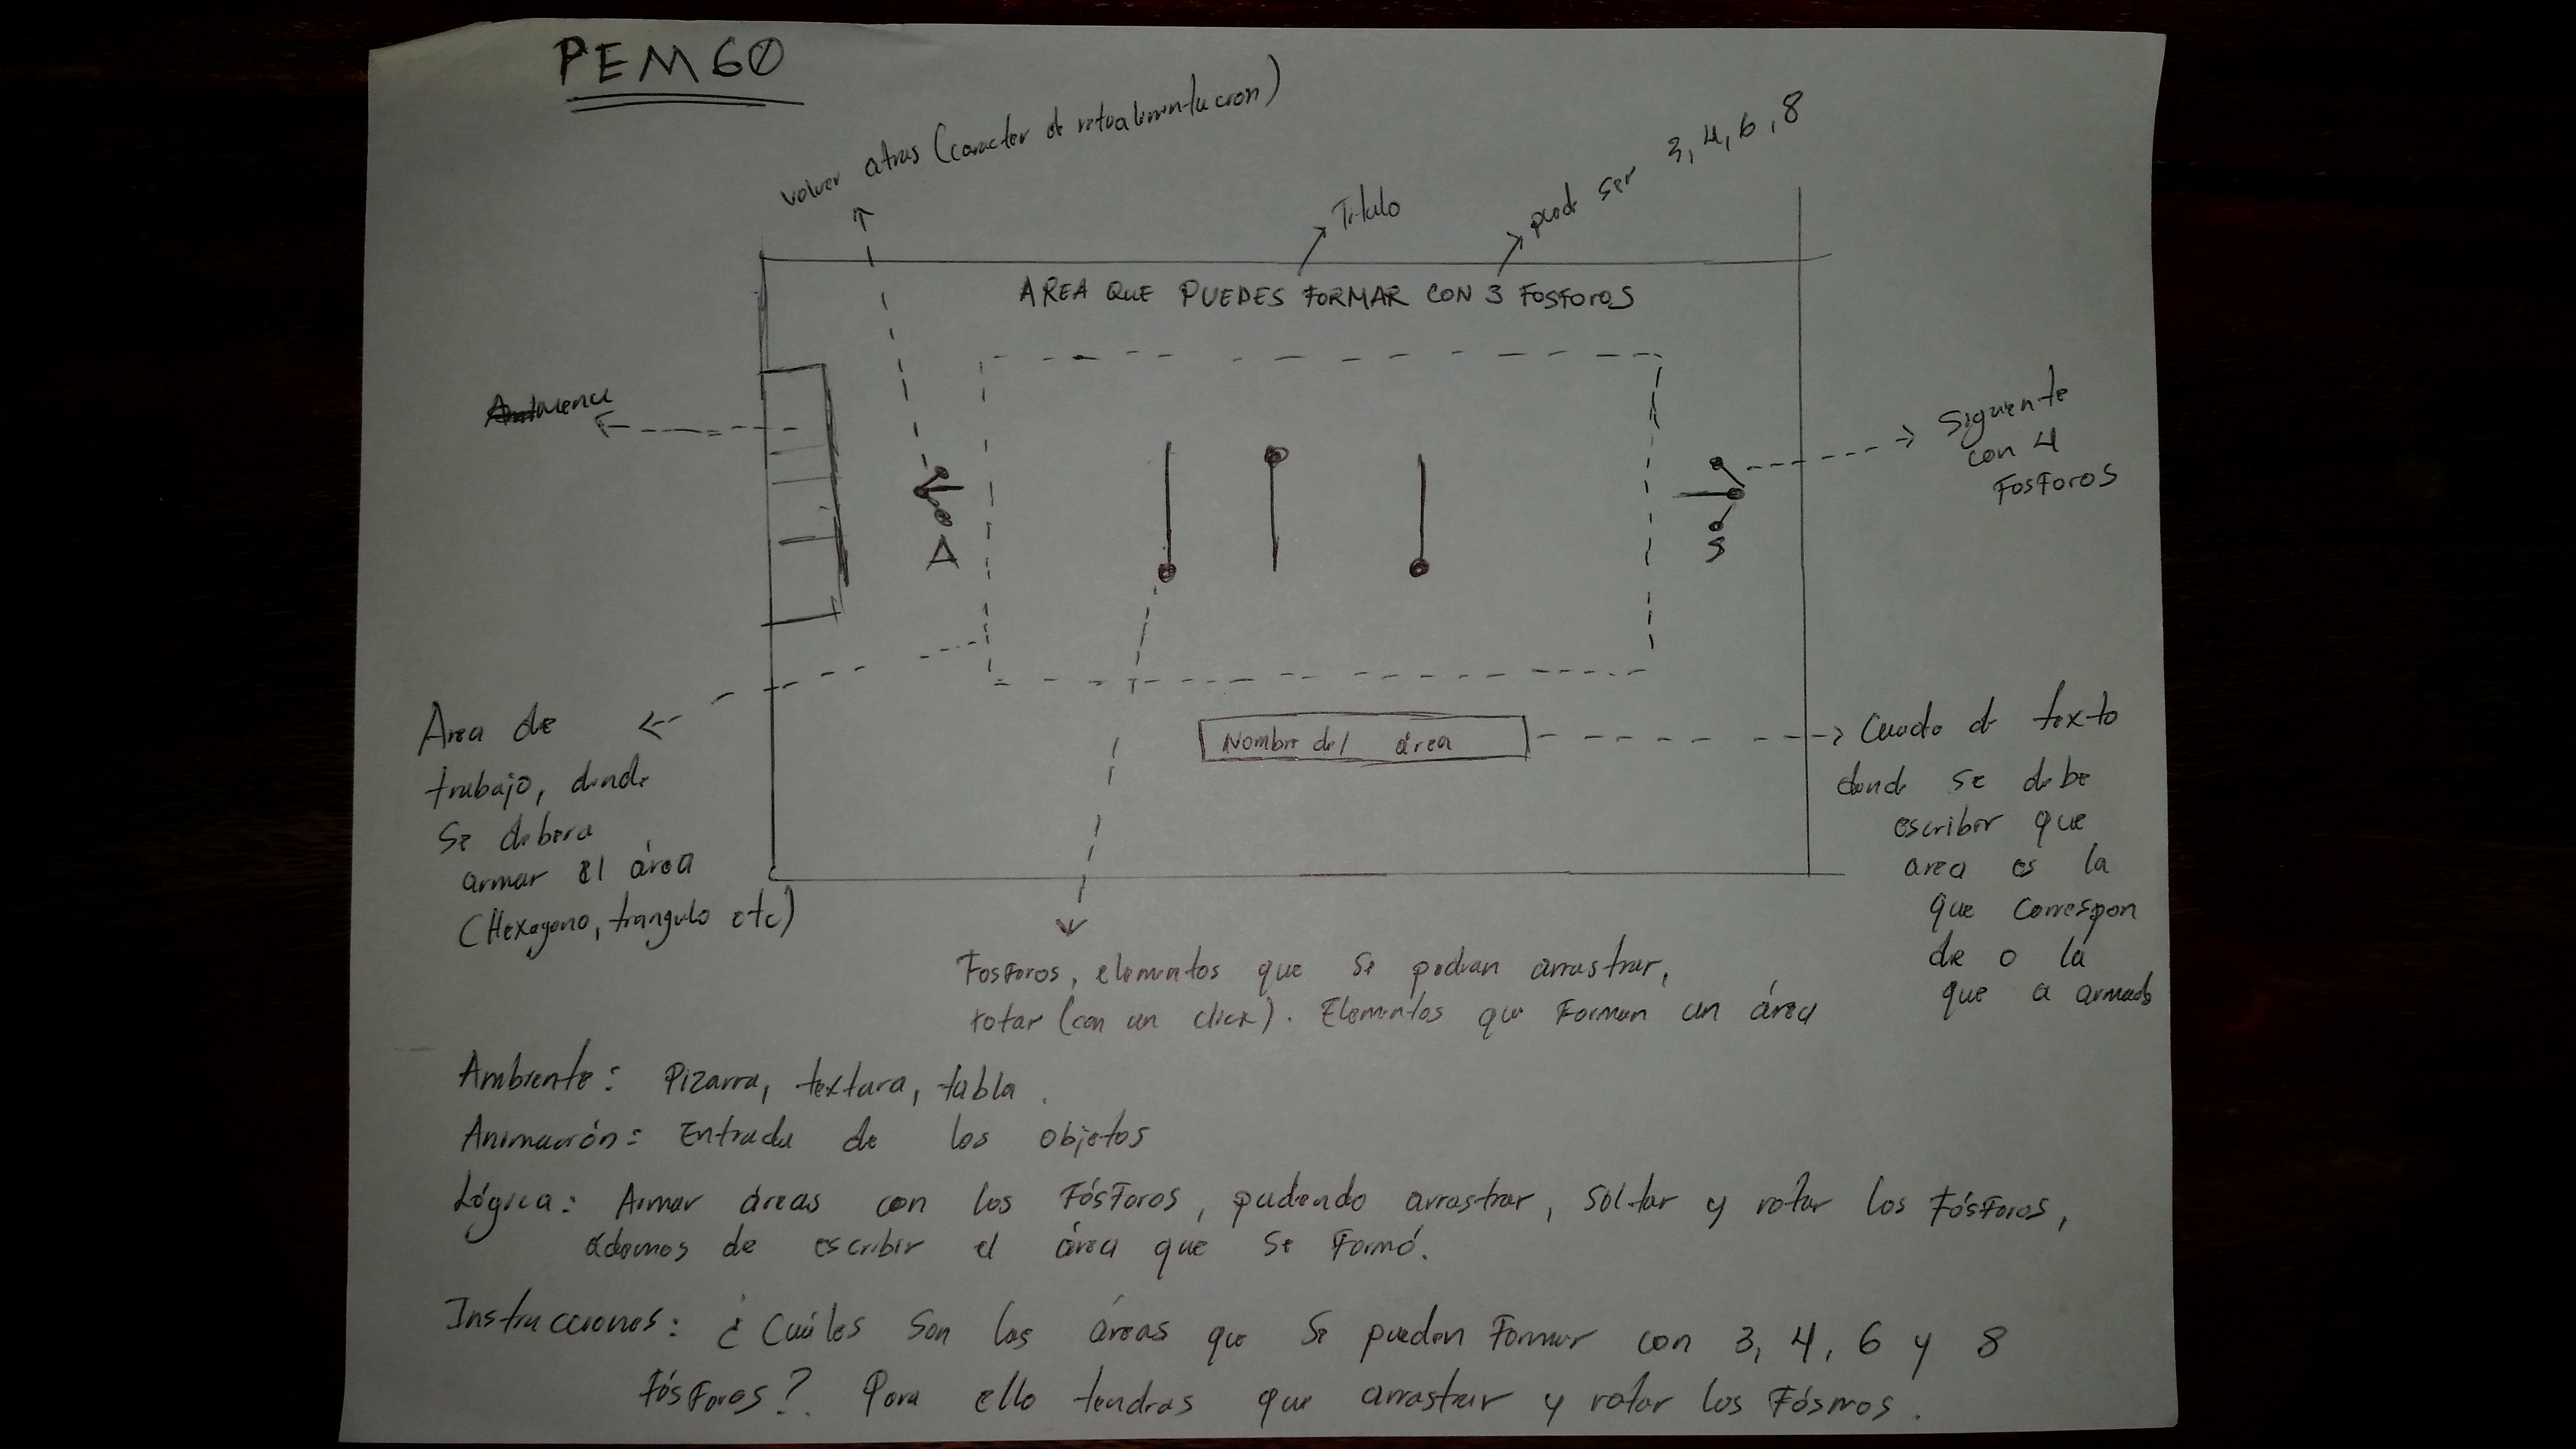 PEM60
volver atras (caracter de retroalimentacion)
Titulo
puede ser 3, 4, 6, 8
AREA QUE PUEDES FORMAR CON 3 FOSFOROS
menu
Siguiente
con 4
FOSFOROS
A
S
Area de
trabajo, donde
se debera
armar el área
(Hexagono, triangulo etc)
Nombre del área
Cuadro de texto
donde se debe
escribir que
area es la
que correspon
de o la
que a armado
Fosforos, elementos que se podran arrastrar,
rotar (con un click). Elementos que Forman un área
Ambiente: Pizarra, textura, tabla.
Animación: Entrada de los objetos
Lógica: Armar áreas con los Fósforos, pudiendo arrastrar, soltar y rotar los Fósforos,
ádemas de escribir el área que se Formó.
Instrucciones: ¿Cuáles son las áreas que se pueden Formar con 3, 4, 6 y 8
Fósforos? Para ello tendras que arrastrar y rotar los Fósforos.